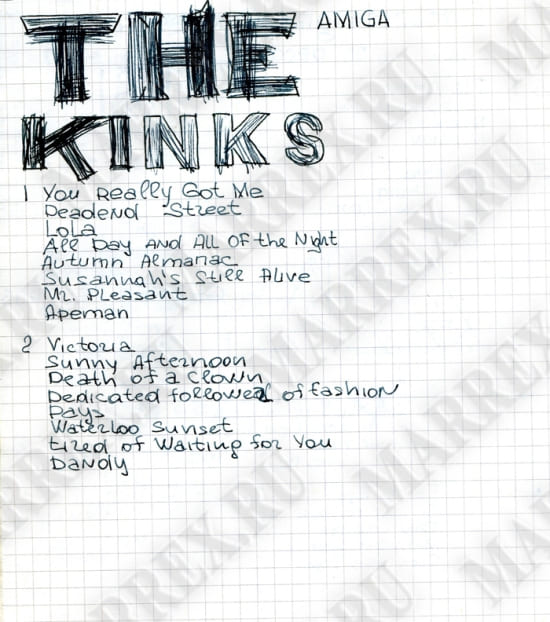 THE AMIGA
KINKS
1 You Really Got Me
Deadend Street
Lola
All Day And All Of the Night
Autumn Almanac
Susannah's Still Alive
Mr. Pleasant
Apeman
2 Victoria
Sunny Afternoon
Death of a Clown
Dedicated followed of fashion
Days
Waterloo Sunset
tired of Waiting for You
Dandy
MARREX.RU